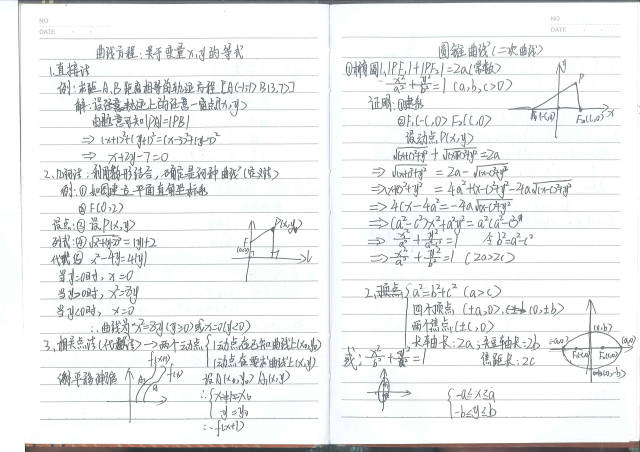 NO
DATE
曲线方程:关于变量x,y的等式
1.直接法
例:求距A,B距离相等的轨迹方程 [A(-1,-1) B(3,7)]
解:设任意轨迹上的任意一点为P(x,y)
由题意可知|PA|=|PB|
⇒ (x+1)²+(y+1)²=(x-3)²+(y-7)²
⇒ x+2y-7=0
2.几何法:利用数形结合,确定是何种曲线(定义法)
例:①如图建立平面直角坐标系
②F(0,2)
设点:③设P(x,y)
列式:④√x²+(y-2)²=|y|+2
代数:⑤x²-4y=4|y|
当y=0时,x=0
当y>0时,x²=8y
当y<0时,x=0
∴曲线为x²=8y(y>0)或x=0(y<0)
3.相关点法(代数法)→两个动点{1动点在已知曲线上(x₀,y₀)
1动点在要求曲线上(x,y)
例:平移
f(x+1)
f(x)
设A(x₀,y₀) A₁(x,y)
∴{x+1=x₀
y=y₀
∴f(x+1)
P(x,y)
F
NO
DATE
圆锥曲线(二次曲线)
①椭圆 |PF₁|+|PF₂|=2a(常数)
x²/a²+y²/b²=1 (a,b,c>0)
证明:①建系
②F₁(-c,0) F₂(c,0)
设动点P(x,y)
√(x+c)²+y²+√(x-c)²+y²=2a
⇒ √(x+c)²+y²=2a-√(x-c)²+y²
⇒(x+c)²+y²=4a²+(x-c)²+y²-4a√(x-c)²+y²
⇒4cx-4a²=-4a√(x-c)²+y²
⇒(a²-c²)x²+a²y²=a²(a²-c²)
令b²=a²-c²
⇒ x²/a²+y²/b²=1 (2a>2c)
y
P
x
F₁(-c,0)
F₂(c,0)
2.顶点{a²=b²+c² (a>c)
四个顶点(±a,0),(0,±b)
两个焦点(±c,0)
长轴长:2a,短轴长:2b
焦距长:2c
或:x²/b²+y²/a²=1
{-a≤x≤a
-b≤y≤b
(0,b)
(-a,0)
(a,0)
F₁(-c,0)
F₂(c,0)
(0,-b)